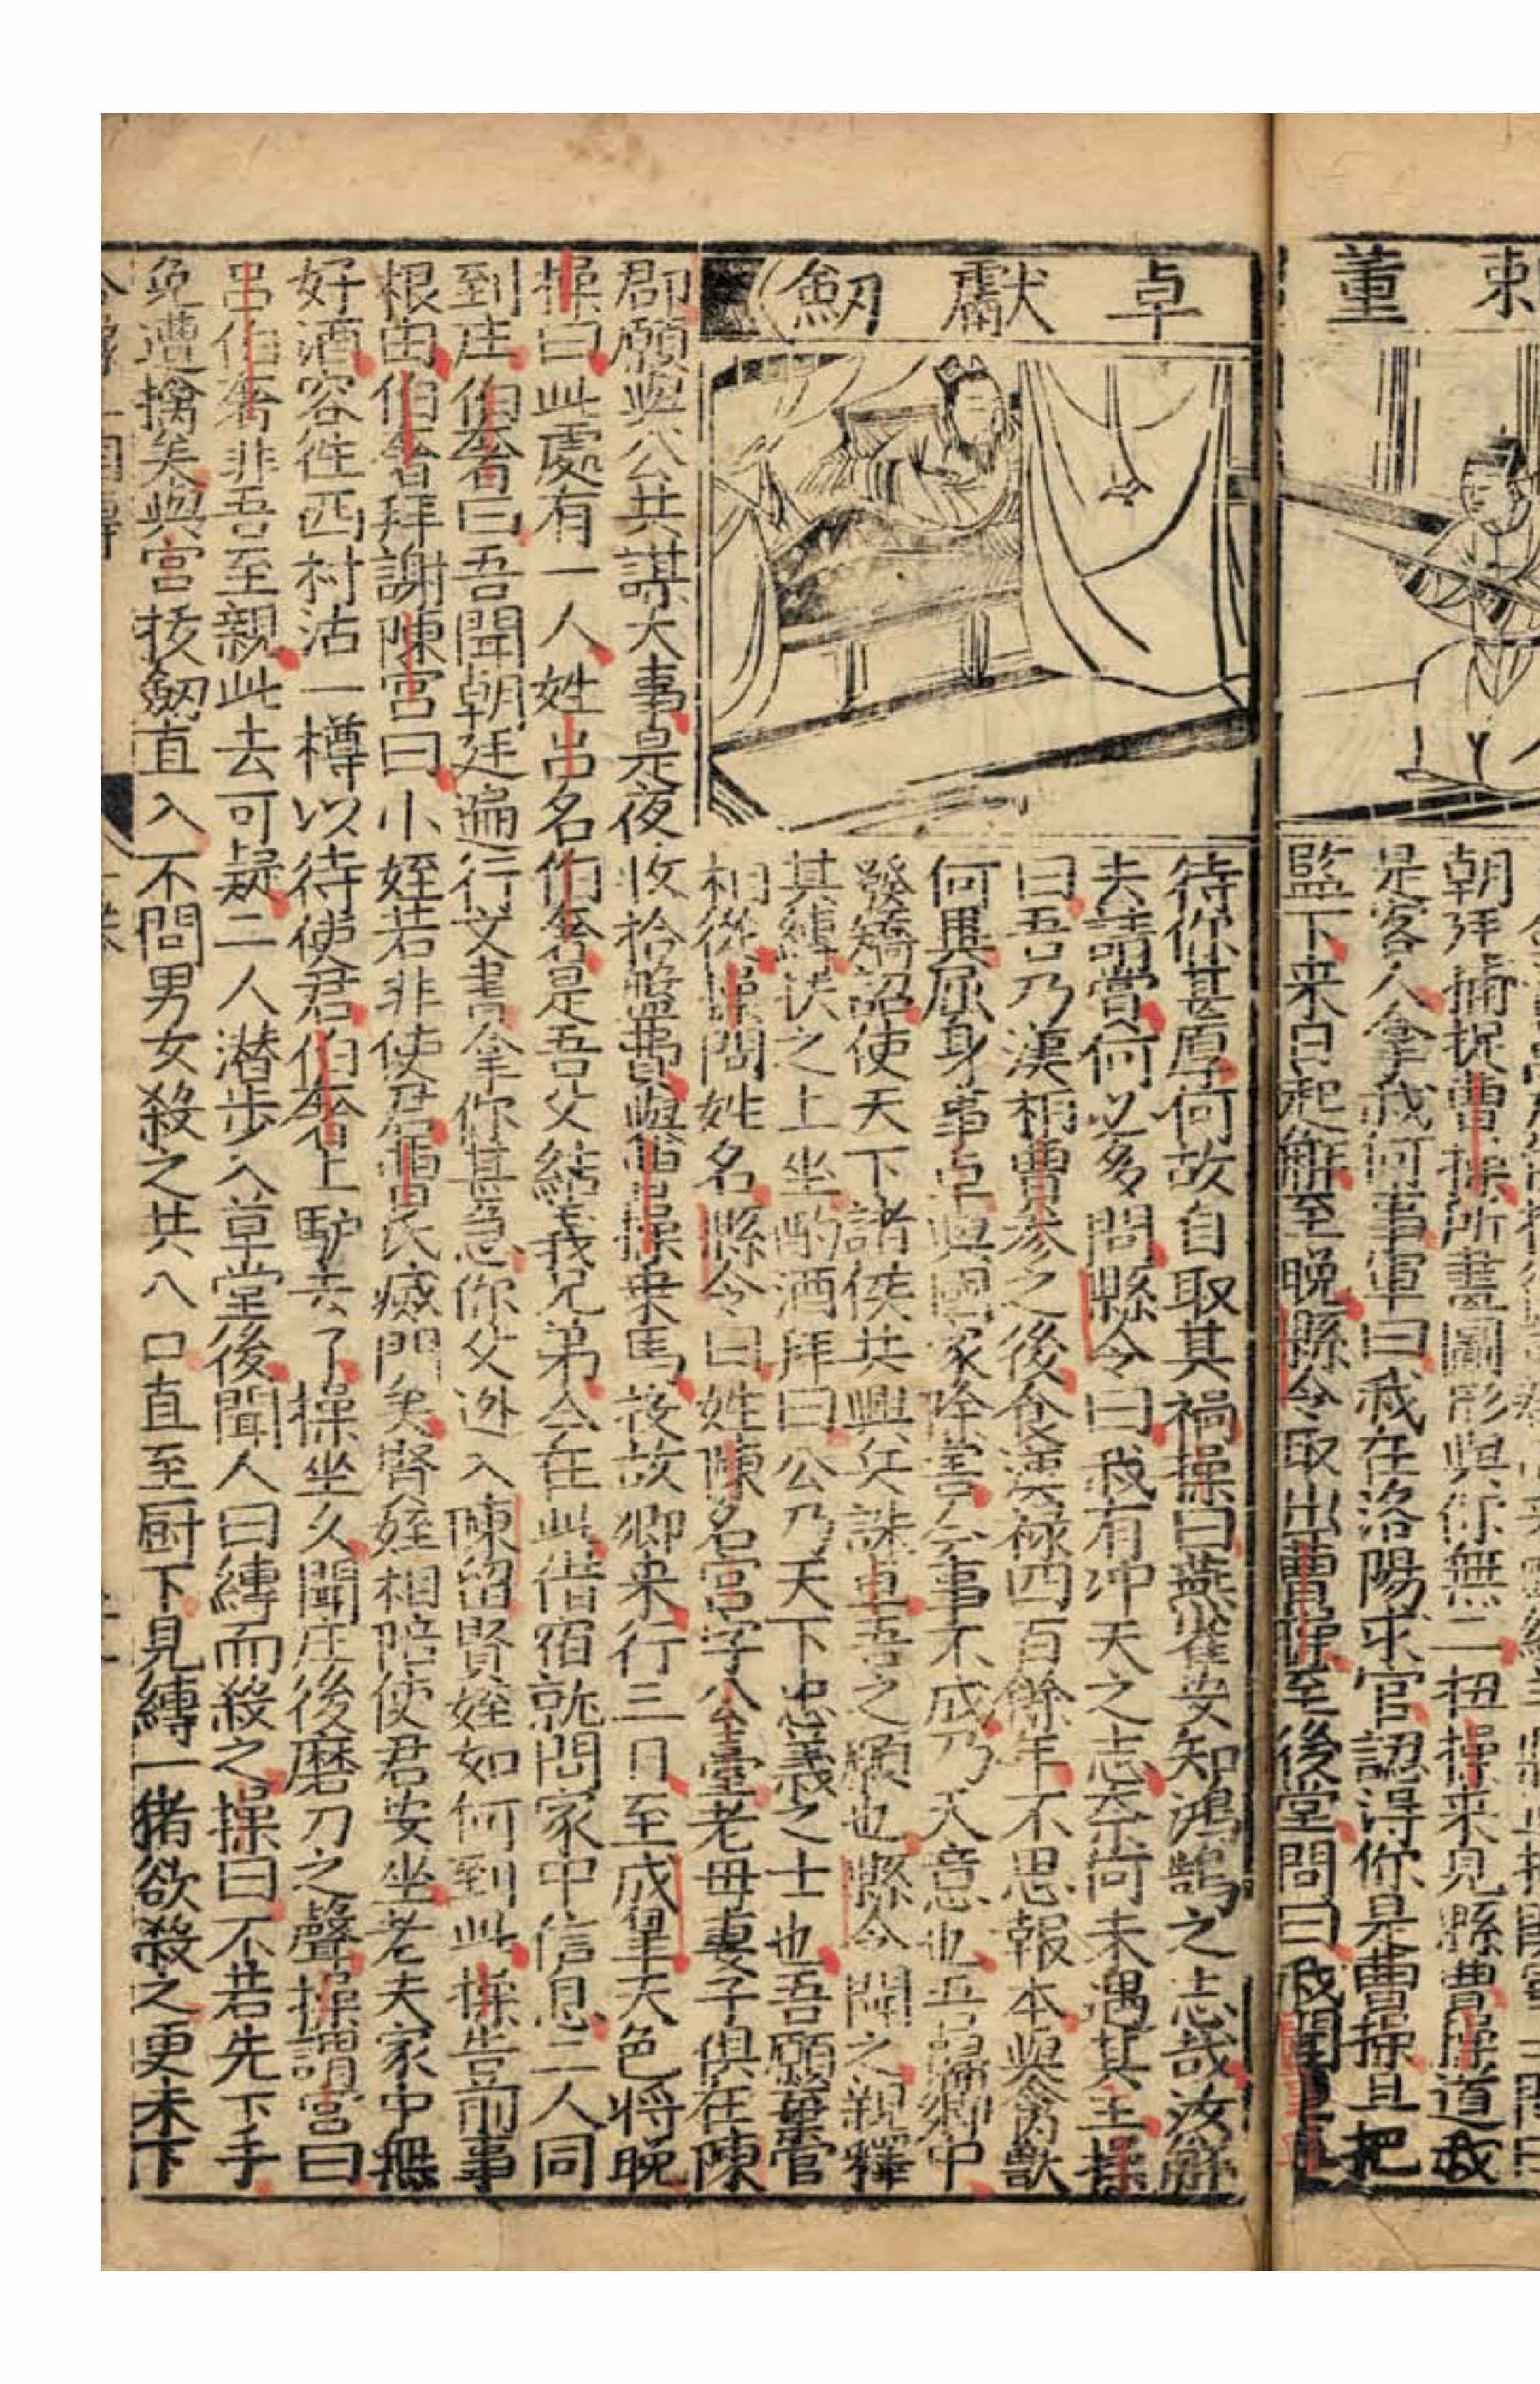 朝拜捕捉曹操所畫圖形與你無二扭操来見縣曹操道我
是客人拿我何事軍曰我在洛陽求官認淂你是曹操且把
監下来日起解至晚縣令取出曹操至後堂問曰我聞
董
卓獻劒
待你甚厚何故自取其禍操曰燕雀安知鴻鵠之志哉汝觧
去請賞何必多問縣令曰我有冲天之志奈何未遇其主操
曰吾乃漢相曹參之後食漢禄四百餘年不思報本與禽獸
何異屈身事卓與國家除害今事不成乃天意也吾歸鄉中
發矯詔使天下諸侯共興兵誅卓吾之願也縣令聞之親釋
其縛扶之上坐酌酒拜曰公乃天下忠義之士也吾願棄官
相從操問姓名縣令曰姓陳名宮字公臺老母妻子俱在陳
郡願與公共謀大事是夜收拾盤費與曹操乗馬投故鄉来行三日至成皐天色将晚
操曰此處有一人姓吕名伯奢是吾父結義兄弟今在此借宿就問家中信息二人同
到庄伯奢曰吾聞朝廷遍行文書拿你甚急你父迯入陳留賢姪如何到此操告前事
根由伯奢拜謝陳宮曰小姪若非使君曹氏滅門矣寳姪相陪使君安坐老夫家中無
好酒容徃西村沽一樽以待使君伯奢上馿去了操坐久聞庄後磨刀之聲操謂宮曰
吕伯奢非吾至親此去可疑二人潜步入草堂後聞人曰縛而殺之操曰不若先下手
免遭擒矣與宮拔劒直入不問男女殺之共八口直至厨下見縛一猪欲殺之更未下